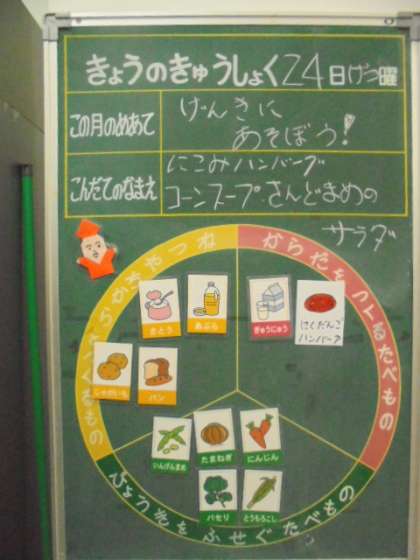 きょうのきゅうしょく 24日げつ曜
この月のめあて
げんきに
あそぼう!
こんだてのなまえ
にこみハンバーグ
コーンスープ・さんどまめの
サラダ
からだをつくるたべもの
さとう
あぶら
ぎゅうにゅう
にくだんご
ハンバーグ
じゃがいも
パン
いんげんまめ
たまねぎ
にんじん
パセリ
とうもろこし
びょうきをふせぐたべもの